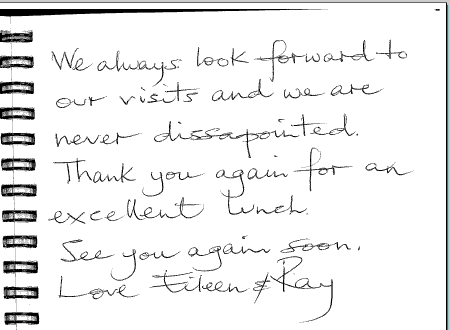 We always look forward to
our visits and we are
never dissapointed.
Thank you again for an
excellent lunch.
See you again soon.
Love Eileen & Ray